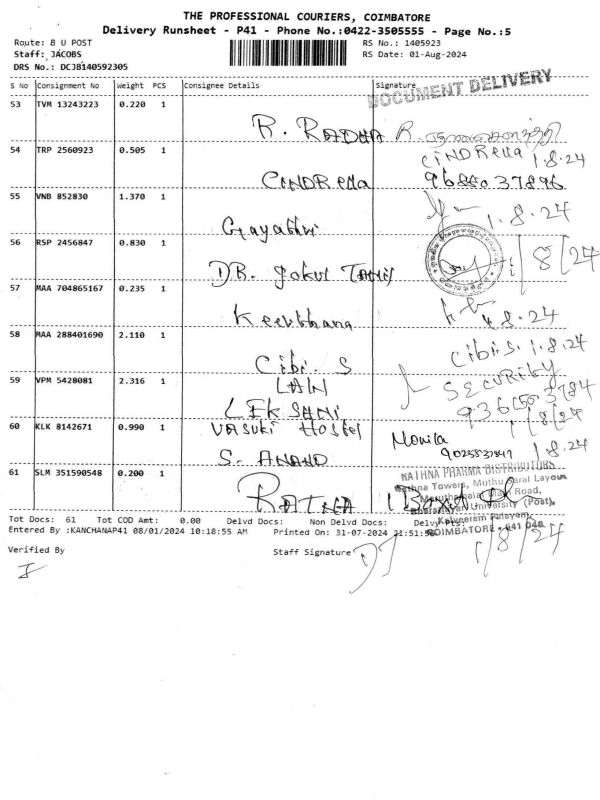 THE PROFESSIONAL COURIERS, COIMBATORE
Delivery Runsheet - P41 - Phone No.:0422-3505555 - Page No.:5
Route: B U POST
RS No.: 1405923
Staff: JACOBS
RS Date: 01-Aug-2024
DRS No.: DCJB140592305
S No Consignment No Weight PCS Consignee Details Signature
DOCUMENT DELIVERY
53 TVM 13243223 0.220 1
R. RADHA R.
54 TRP 2560923 0.505 1
CINDRella 1.8.24
CINDRella
55 VNB 852830 1.370 1
1.8.24
Gayathri
56 RSP 2456847 0.830 1
1/8/24
DR. Gokul
57 MAA 704865167 0.235 1
Keerthana
8.24
58 MAA 288401690 2.110 1
Cibi. S Cibi.S. 1.8.24
LAW SECURITY
59 VPM 5428081 2.316 1
1/8/24
60 KLK 8142671 0.990 1
VASUKI Hostel
S. ANAND 1.8.24
61 SLM 351590548 0.200 1
NATHNA PHARMA DISTRIBUTORS
Nathna Towers, Muthu Layout
Road,
RATNA 1 Box
University (Post),
COIMBATORE - 641 046
Tot Docs: 61 Tot COD Amt: 0.00 Delvd Docs: Non Delvd Docs:
Entered By :KANCHANAP41 08/01/2024 10:18:55 AM Printed On: 31-07-2024
1/8/24
Verified By Staff Signature